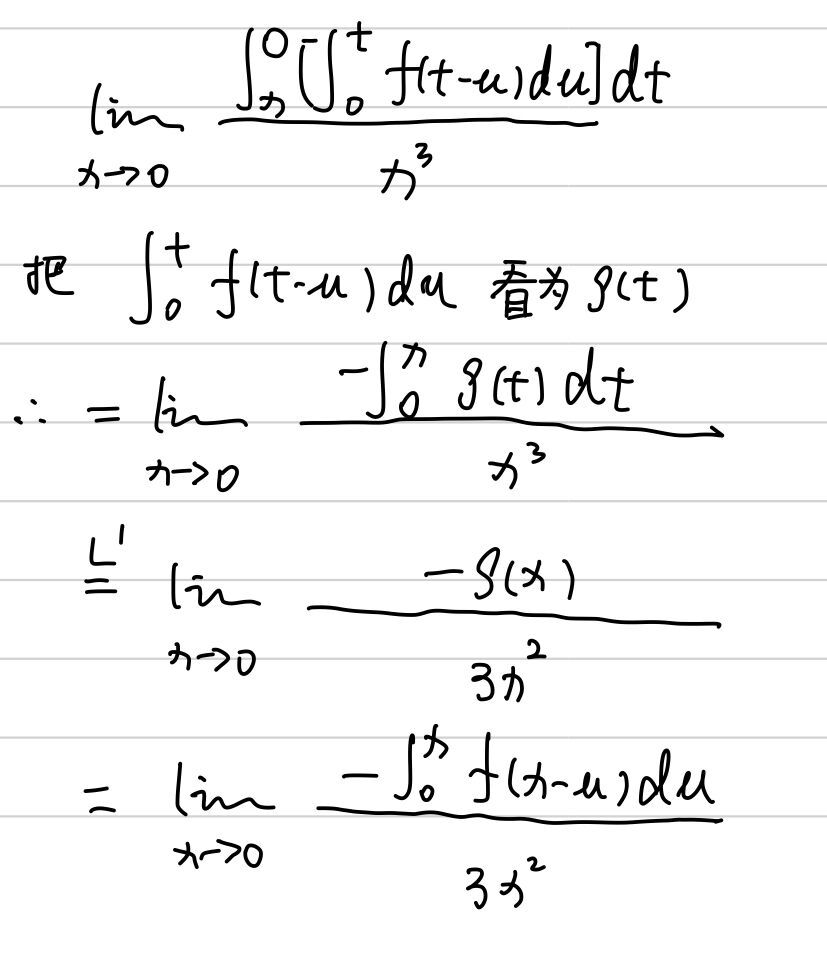 lim_{x→0} \frac{∫_x^0 [∫_0^t f(t-u)du]dt}{x^3}
把 ∫_0^t f(t-u)du 看为 g(t)
∴ = lim_{x→0} \frac{-∫_0^x g(t)dt}{x^3}
\overset{L'}{=} lim_{x→0} \frac{-g(x)}{3x^2}
= lim_{x→0} \frac{-∫_0^x f(x-u)du}{3x^2}